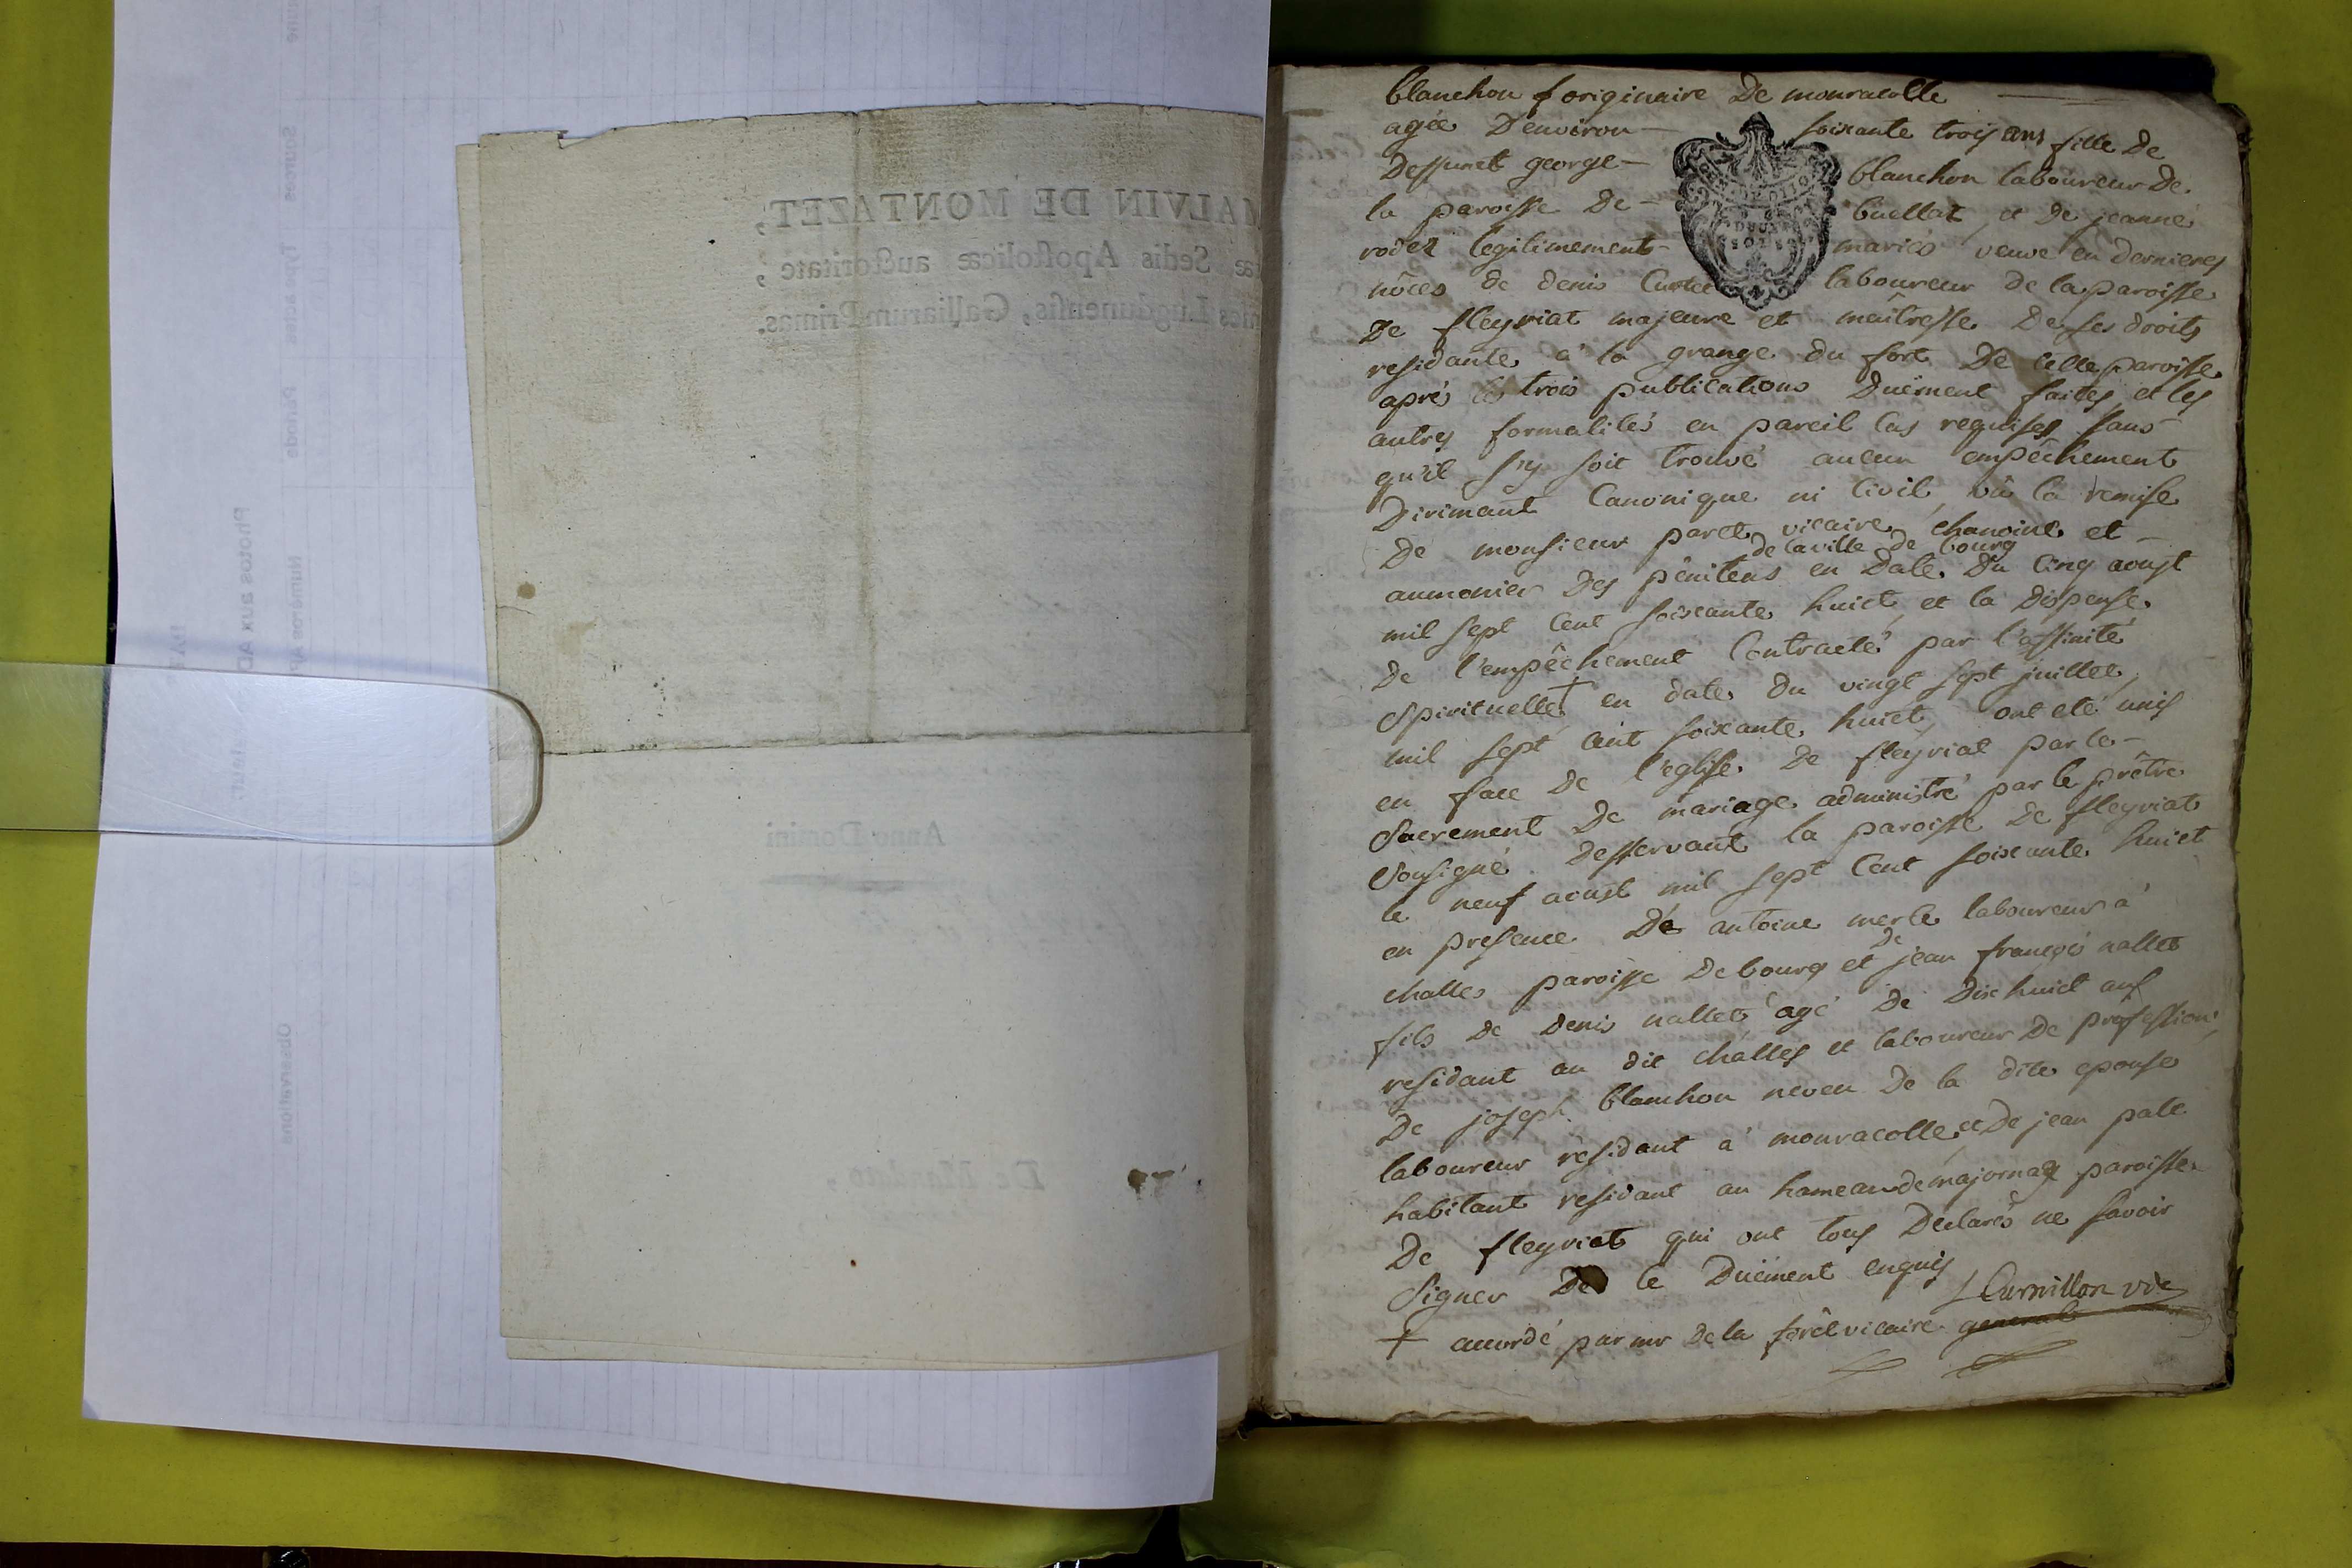 MALVIN DE MONTAZET,
Sedis Apostolicæ auctoritate ;
Lugdunensis, Galliarum Primas.
Anno Domini
De Mandato ,
Sources
Type actes
Période
Photos aux AD
Observations
blanchon originaire De mouracolle
agée D'environ soixante trois ans fille De
Deffunct george blanchon laboureur De
la paroisse De buellat, et De jeanne
rodet legitimement mariés veuve en dernieres
nôces de denis laboureur de la paroisse
De fleyriat majeure et maîtresse De ses droits
residante à la grange du fort De cette paroisse
aprés les trois publications Duëment faites et les
autres formalités en pareil cas requises sans
qu'il s'y soit trouvé aucun empêchement
Dirimant Canonique ni Civil, vû la remise
De monsieur paret vicaire chanoine et
de la ville de bourg
aumonier Des pénitens en Date Du cinq aoust
mil sept cent soixante huict et la Dispense
De l'empêchement Contracté par l'affinité
Spirituelle + en date Du vingt sept juillet
mil sept cent soixante huict, ont eté unis
en face De l'eglise De fleyriat par le
Sacrement De mariage administré par le prêtre
Sousigné Desservant la paroisse De fleyriat
le neuf aoust mil sept Cent soixante huict
en presence De antoine merle laboureur à
challes paroisse De bourg et De jean françois nallet
fils De Denis nallet agé De Dix huict ans
residant au dit challes et laboureur De profession,
De joseph blanchon neveu De la dite epouse
laboureur résidant à mouracolle, et De jean pale
habitant residant au hameau de majornas paroisse
De fleyriat qui ont tous Déclarés ne savoir
Signer De ce Duëment enquis
Curnillon vic
+ accordé par mr De la forêt vicaire general